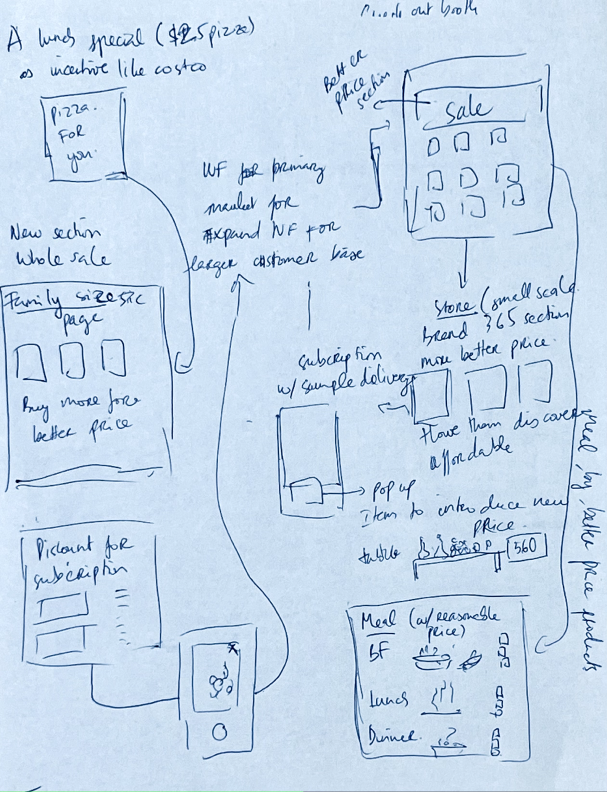 A lunch special ($2.5 pizza)
as incentive like costco
out booth
pizza.
FOR
you.
Better
price
section
Sale
WF for primary
market for
Expand WF for
larger customer base
New section
Whole sale
Family size
page
Buy more for
better price
Store (small scale
Brand 365 section
more better price.
subscription
w/ sample delivery
Have them discover
affordable
pop up
Item to introduce new
price.
table
560
Discount for
subscription
Meal (w/ reasonable
price)
BF
Lunch
Dinner
Meal by better price products